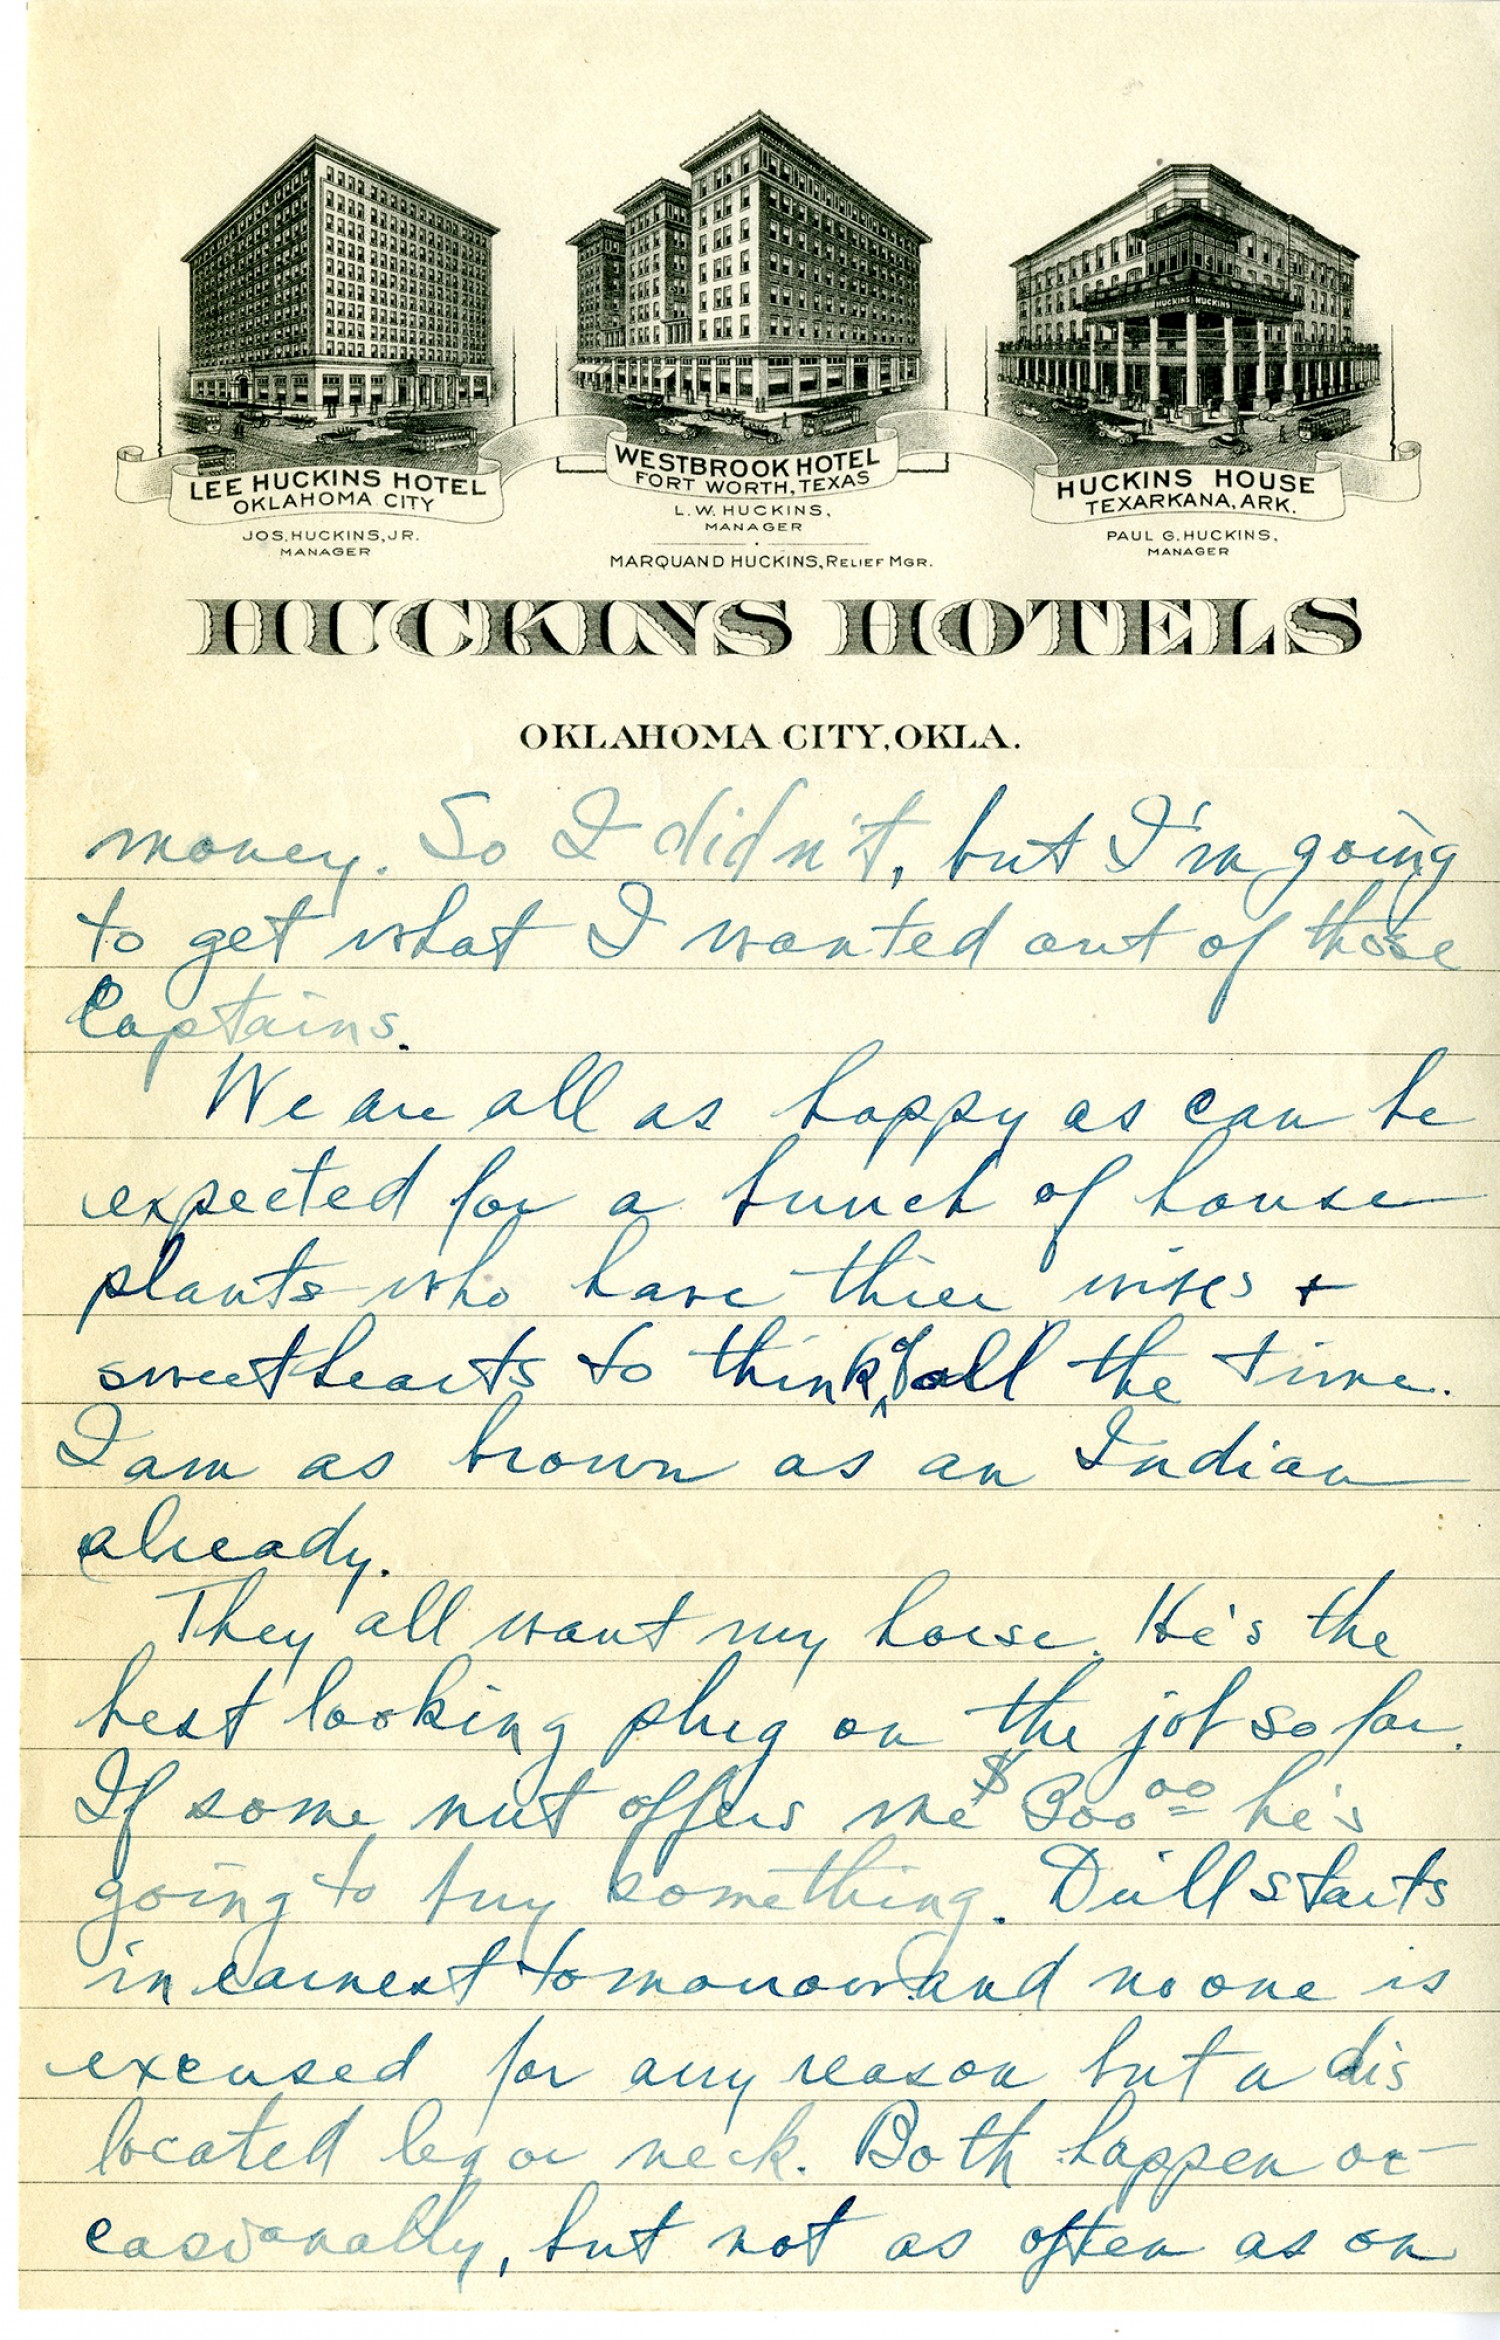 HUCKINS HUCKINS
LEE HUCKINS HOTEL
OKLAHOMA CITY
JOS. HUCKINS, JR.
MANAGER
WESTBROOK HOTEL
FORT WORTH, TEXAS
L. W. HUCKINS,
MANAGER
MARQUAND HUCKINS, RELIEF MGR.
HUCKINS HOUSE
TEXARKANA, ARK.
PAUL G. HUCKINS,
MANAGER
HUCKINS HOTELS
OKLAHOMA CITY, OKLA.
money. So I didn't, but I'm going
to get what I wanted out of those
Captains.
We are all as happy as can be
expected for a bunch of house
plants who have thier wives +
sweethearts to think of all the time.
I am as brown as an Indian
already.
They all want my horse. He's the
best looking plug on the job so far.
If some nut offers me $300.00 he's
going to buy something. Drill starts
in earnest tomorrow and no one is
excused for any reason but a dis
located leg or neck. Both happen oc-
casionally, but not as often as on